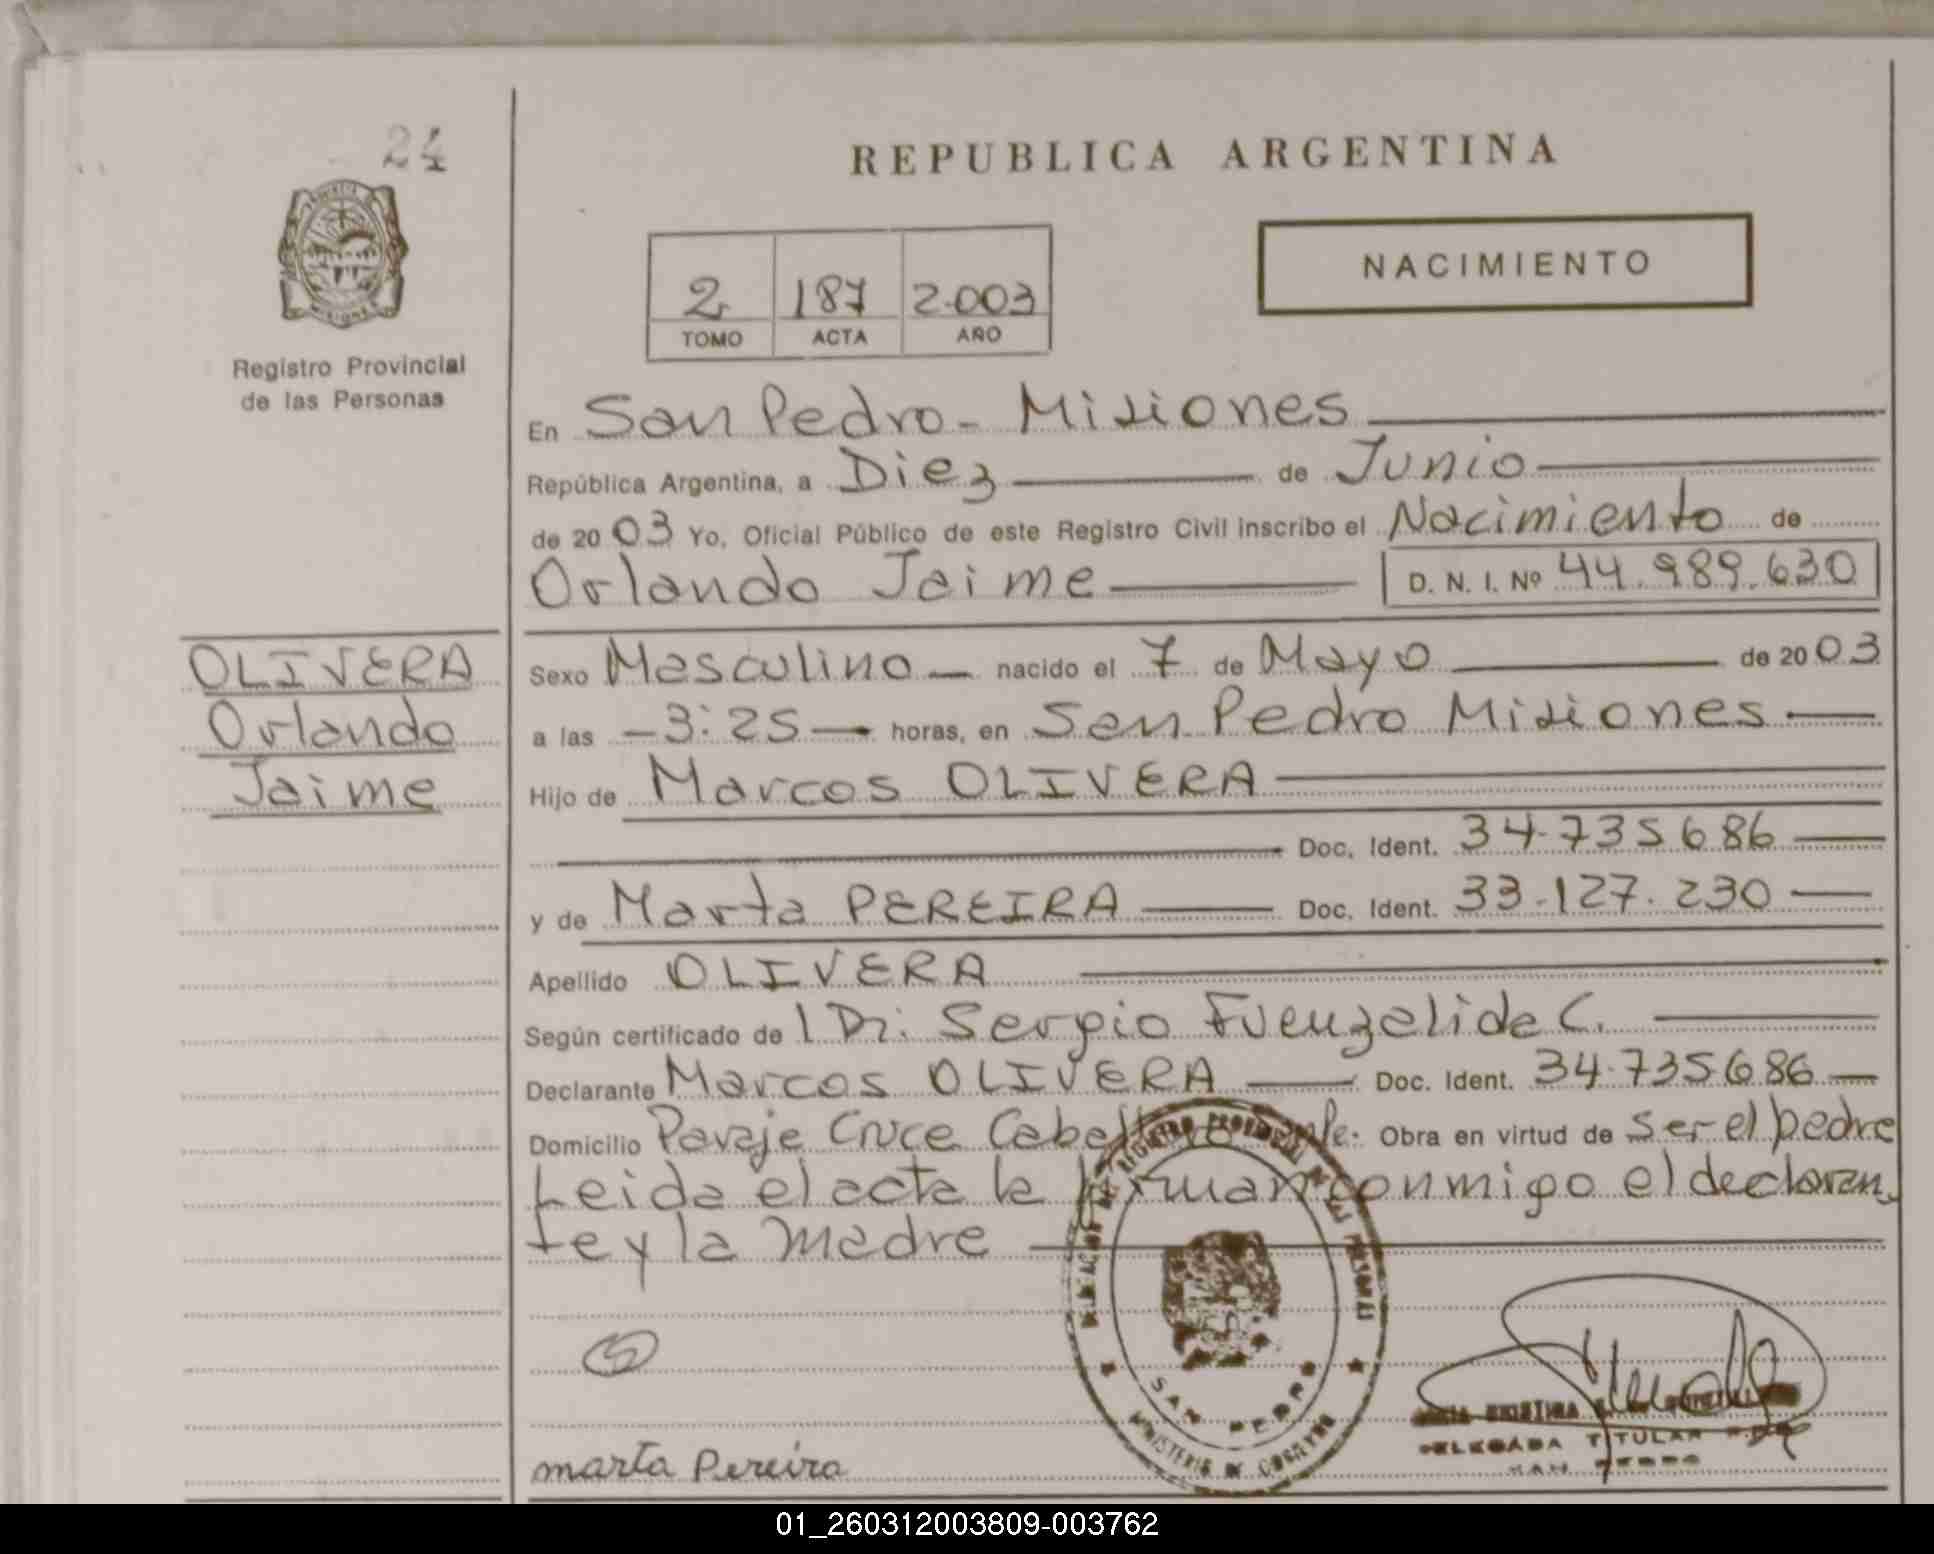 24
REPUBLICA ARGENTINA
NACIMIENTO
2 187 2.003
TOMO ACTA AÑO
Registro Provincial
de las Personas
En San Pedro - Misiones
República Argentina, a Diez de Junio
de 20 03 Yo, Oficial Público de este Registro Civil inscribo el Nacimiento de
Orlando Jaime D. N. I. Nº 44.989.630
OLIVERA
Orlando
Jaime
Sexo Masculino nacido el 7 de Mayo de 20 03
a las - 3:25 - horas, en San Pedro Misiones
Hijo de Marcos OLIVERA
Doc. Ident. 34.735686
y de Marta PEREIRA Doc. Ident. 33.127.230
Apellido OLIVERA
Según certificado de Dr. Sergio Fuenzalida C.
Declarante Marcos OLIVERA Doc. Ident. 34.735686
Domicilio Paraje Cruce Obra en virtud de ser el padre
Leida el acta la firman conmigo el declaran
te y la madre
DELEGACION REGISTRO PROVINCIAL DE LAS PERSONAS
SAN PEDRO
MINISTERIO DE GOBIERNO
DELEGADA TITULAR
SAN PEDRO
marta Pereira
01_260312003809-003762